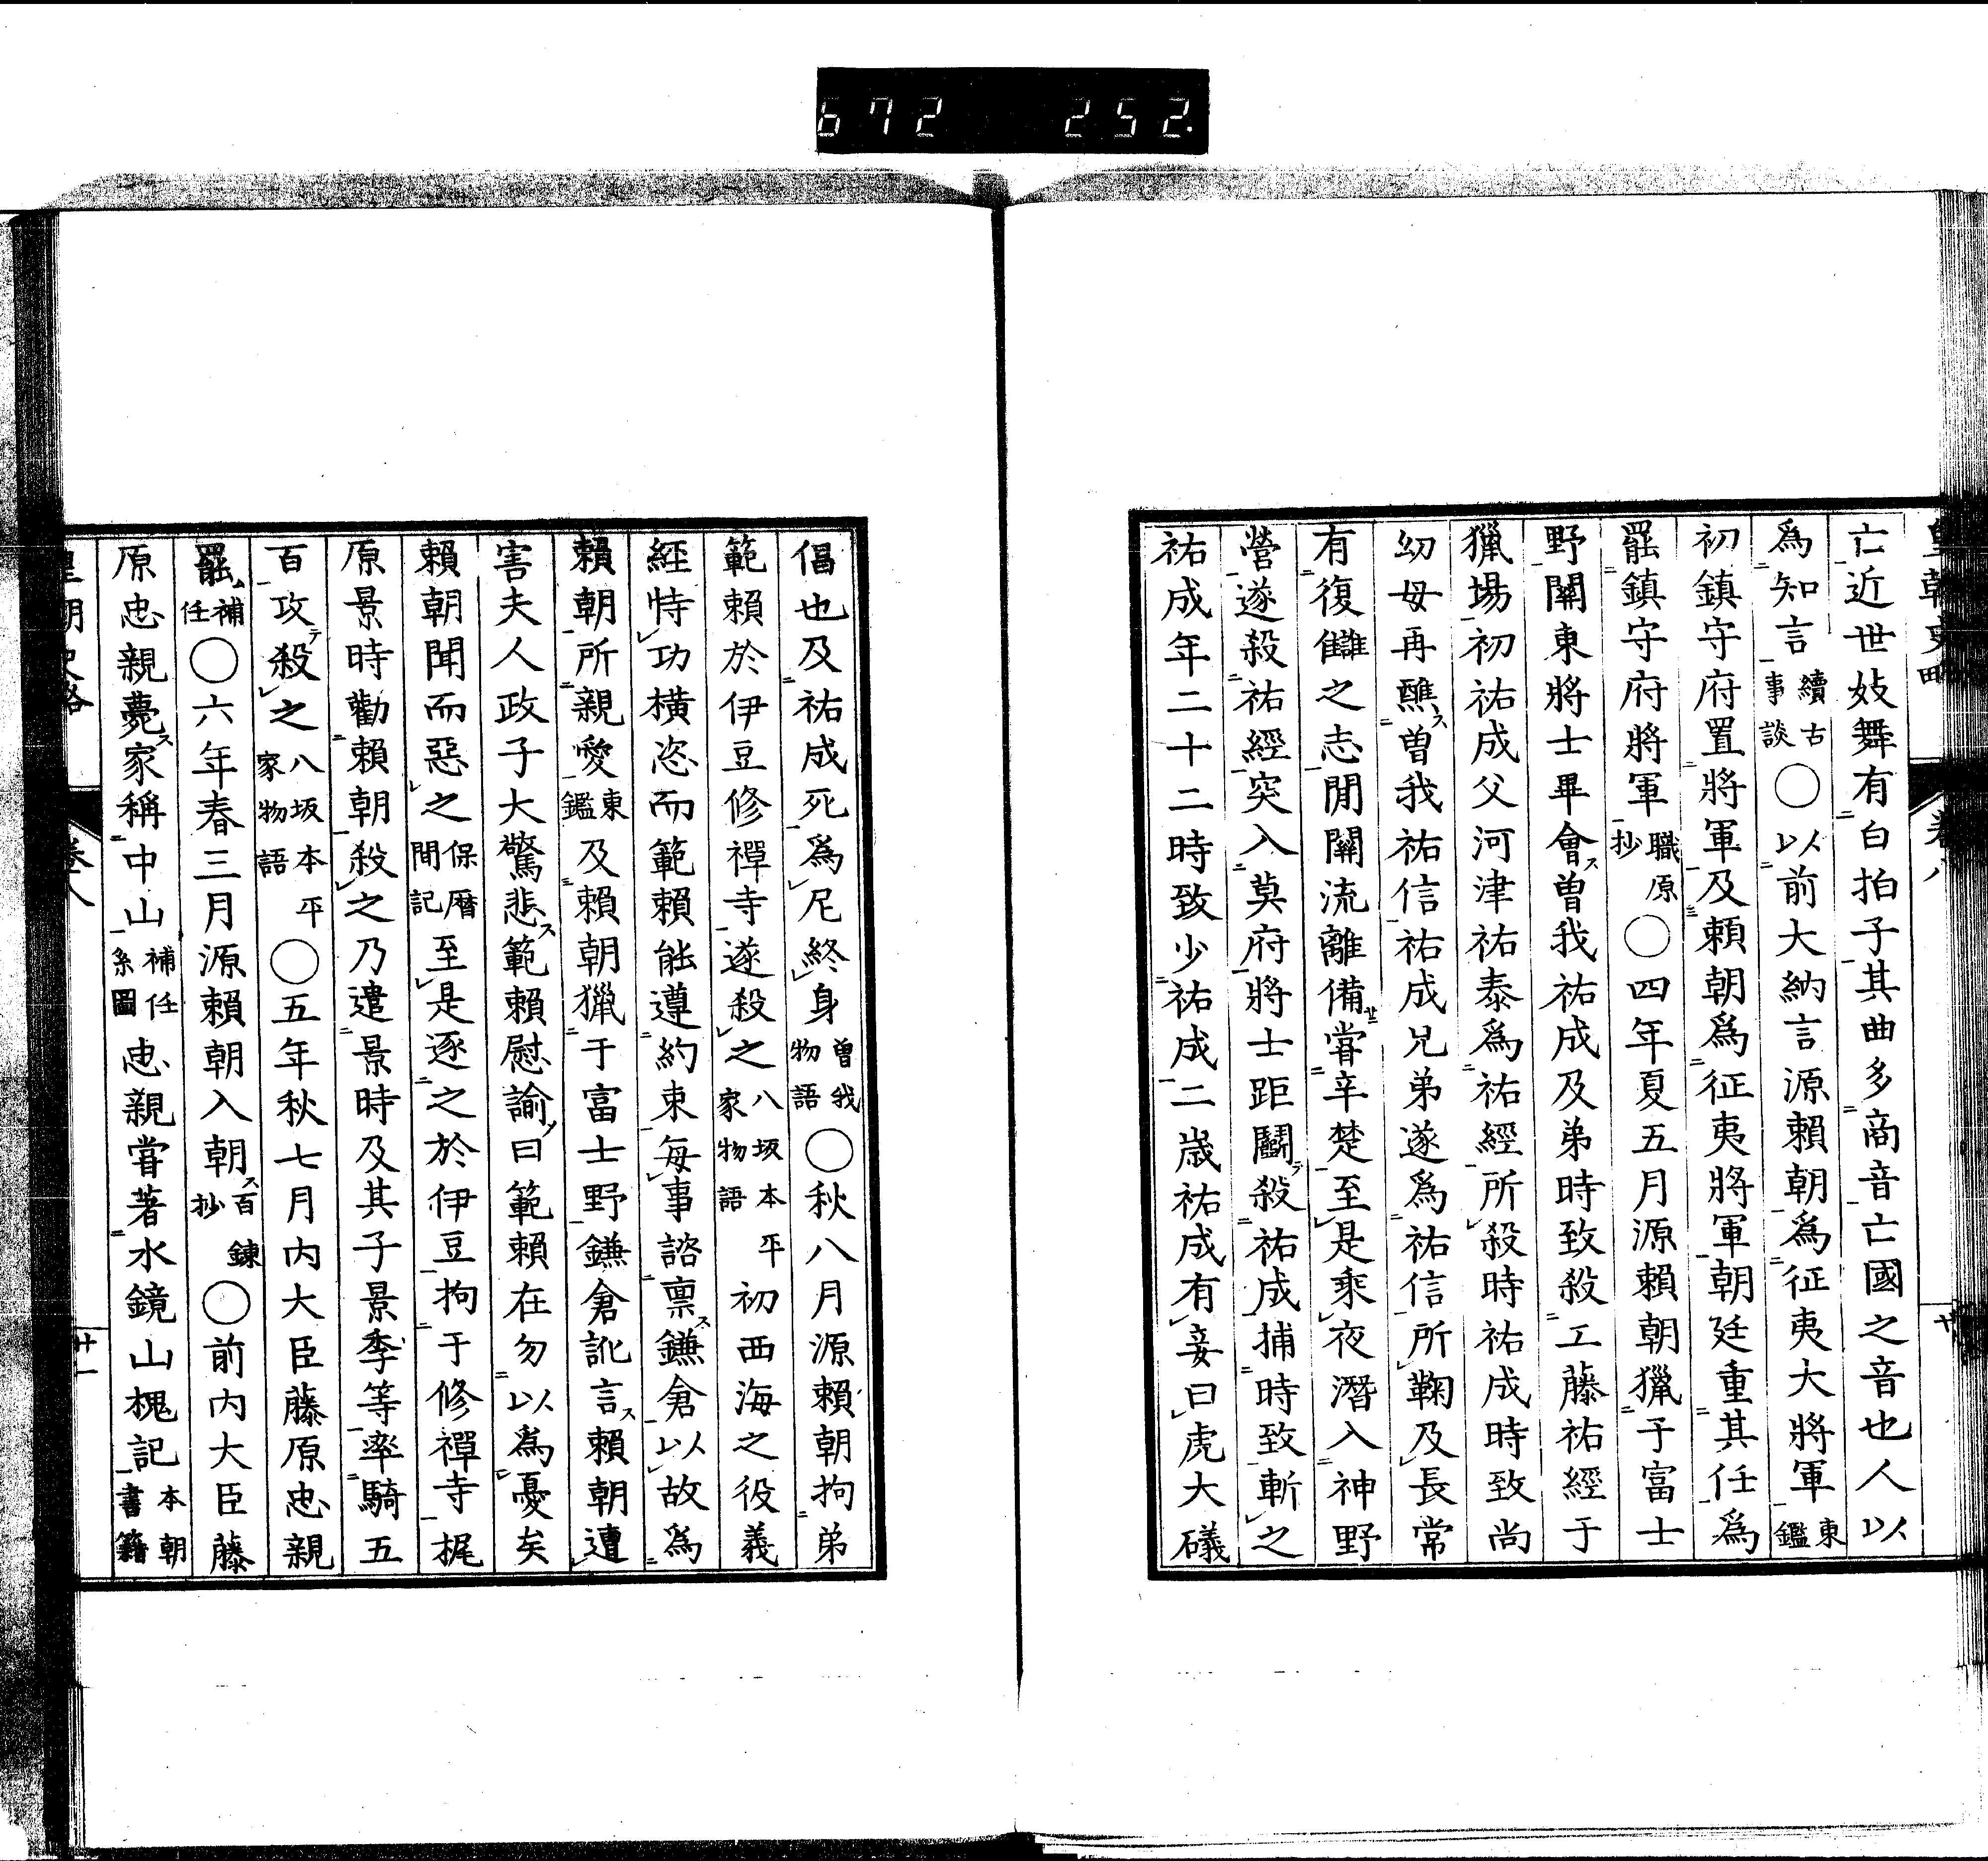 672 252.
皇朝史略 卷八
亡近世妓舞有白拍子其曲多商音亡國之音也人以
爲知言續古事談〇以前大納言源賴朝爲征夷大將軍東鑑
初鎮守府置將軍及賴朝爲征夷將軍朝廷重其任爲
罷鎮守府將軍職原抄〇四年夏五月源賴朝獵于富士
野關東將士畢會ス曽我祐成及弟時致殺工藤祐經于
獵場初祐成父河津祐泰爲祐經所殺時祐成時致尚
幼母再醮ス曽我祐信祐成兄弟遂爲祐信所鞠及長常
有復讎之志閒關流離備甞辛楚至是乘夜潛入神野
營遂殺祐經突入莫府將士距鬭テ殺祐成捕時致斬之
祐成年二十二時致少祐成二歳祐成有妾曰虎大礒
倡也及祐成死爲尼終身曽我物語〇秋八月源賴朝拘弟
範賴於伊豆修禪寺遂殺之八坂本平家物語初西海之役義
經恃功橫恣而範賴能遵約束每事諮稟ス鎌倉以故爲
賴朝所親愛東鑑及賴朝獵于富士野鎌倉訛言ス賴朝遭
害夫人政子大驚悲ス範賴慰諭ノ曰範賴在勿以爲憂矣
賴朝聞而惡之保曆間記至是逐之於伊豆拘于修禪寺梶
原景時勸賴朝殺之乃遣景時及其子景季等率騎五
百攻テ殺之八坂本平家物語〇五年秋七月內大臣藤原忠親
罷補任〇六年春三月源賴朝入朝ス百鍊抄〇前內大臣藤
原忠親薨ス家稱中山補任系圖忠親甞著水鏡山槐記本朝書籍
皇朝史略 卷八 廿一